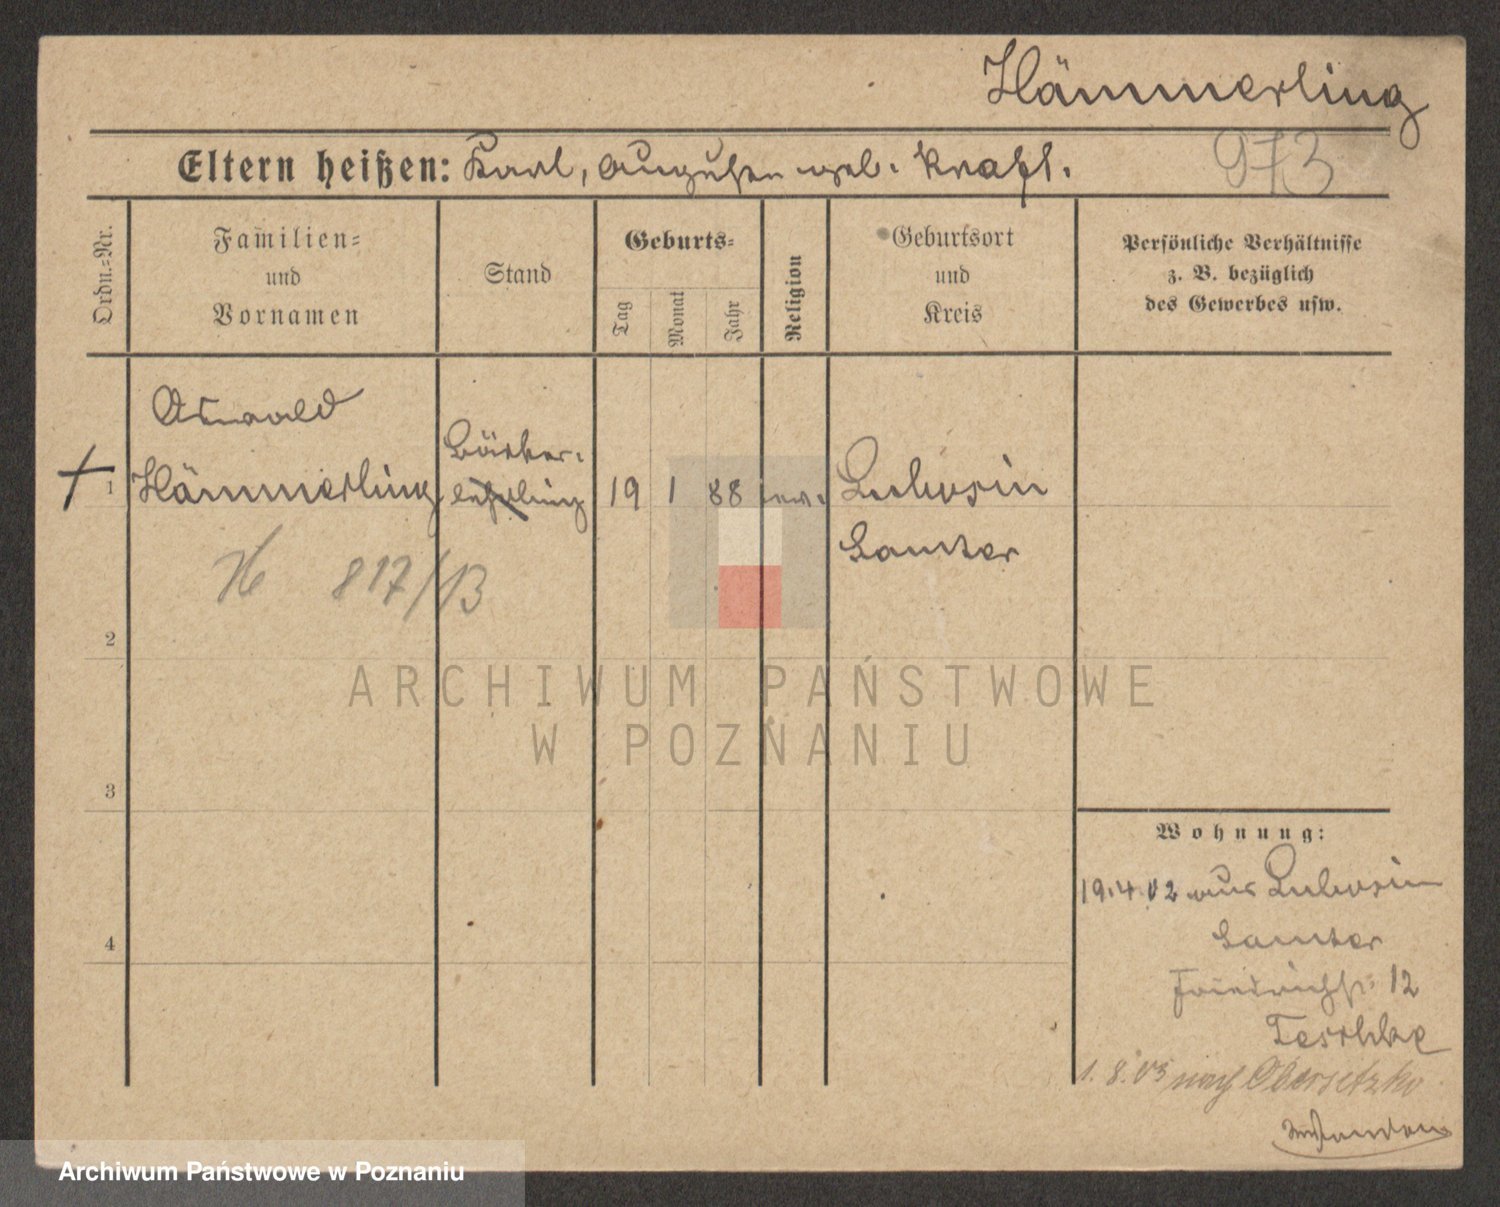 Hämmerling
Eltern heißen: Karl, Augusten geb. Kraft.
973
Ordn.=Nr.
Familien=
und
Vornamen
Stand
Geburts=
Tag
Monat
Jahr
Religion
Geburtsort
und
Kreis
Persönliche Verhältnisse
z. B. bezüglich
des Gewerbes usw.
Oswald
1 Hämmerling Bäcker-
lehrling 19 1 88 ev. Lubosin
Samter
H 817/13
2
3
4
ARCHIWUM PAŃSTWOWE
W POZNANIU
Wohnung:
19.4.02 aus Lubosin
Samter
Friedrichstr. 12
Teschke
1.8.03 nach Obersitzko
Archiwum Państwowe w Poznaniu